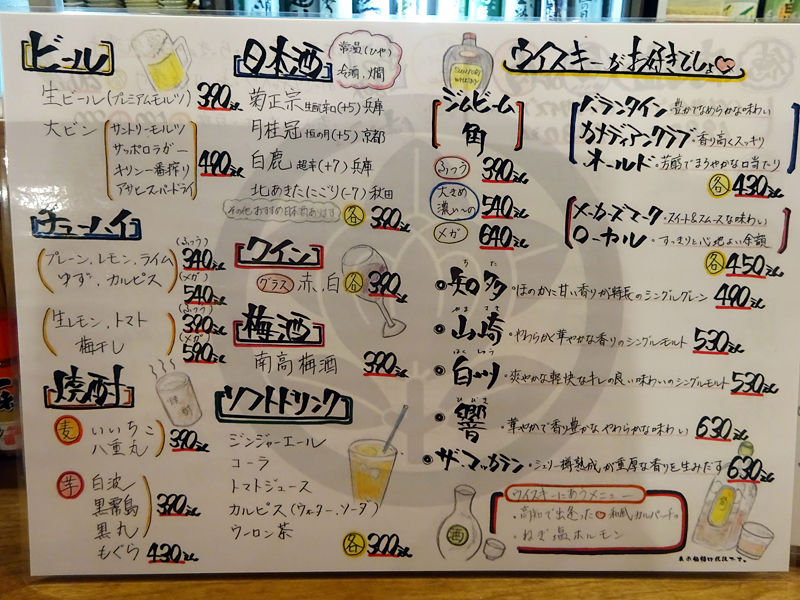 ビール
生ビール(プレミアムモルツ) 390えん
大ビン
サントリーモルツ
サッポロラガー
キリン一番搾り
アサヒスーパードライ
490えん
チューハイ
プレーン、レモン、ライム
ゆず、カルピス
(ふつう)
340えん
(メガ)
540えん
生レモン、トマト
梅干し
(ふつう)
390えん
(メガ)
590えん
焼酎
麦
いいちこ
八重丸
390えん
芋
白波
黒霧島
黒丸
390えん
もぐら 430えん
日本酒
常温(ひや)
冷酒、燗
菊正宗 生酛辛口(+5) 兵庫
月桂冠 恒の月(+5) 京都
白鹿 超辛(+7) 兵庫
北あきた(にごり)(-7) 秋田
その他おすすめ日本酒あります
各 390えん
ワイン
グラス 赤、白 各 390えん
梅酒
南高梅酒 390えん
ソフトドリンク
ジンジャーエール
コーラ
トマトジュース
カルピス(ウォーター、ソーダ)
ウーロン茶
各 300えん
SUNTORY
WHISKY
ウイスキーがお好きでしょ♡
ジムビーム
角
ふつう 390えん
大きめ
濃いーの
540えん
メガ 640えん
バランタイン・豊かでなめらかな味わい
カナディアンクラブ・香り高くスッキリ
オールド・芳醇でまろやかな口当たり
各 430えん
メーカーズマーク・スイート&スムースな味わい
ローヤル・すっきりと心地よい余韻
各 450えん
ちた
知多・ほのかに甘い香りが特長のシングルグレーン 490えん
やまざき
山崎・やわらかく華やかな香りのシングルモルト 530えん
はくしゅう
白州・爽やかな軽快なキレの良い味わいのシングルモルト 530えん
ひびき
響・華やかで香り豊かなやわらかな味わい 630えん
ザ・マッカラン・シェリー樽熟成が重厚な香りを生みだす 630えん
ウイスキーにあうメニュー
・高知で出逢った♡和風カルパッチョ
・ねぎ塩ホルモン
酒
表示価格は税抜です。